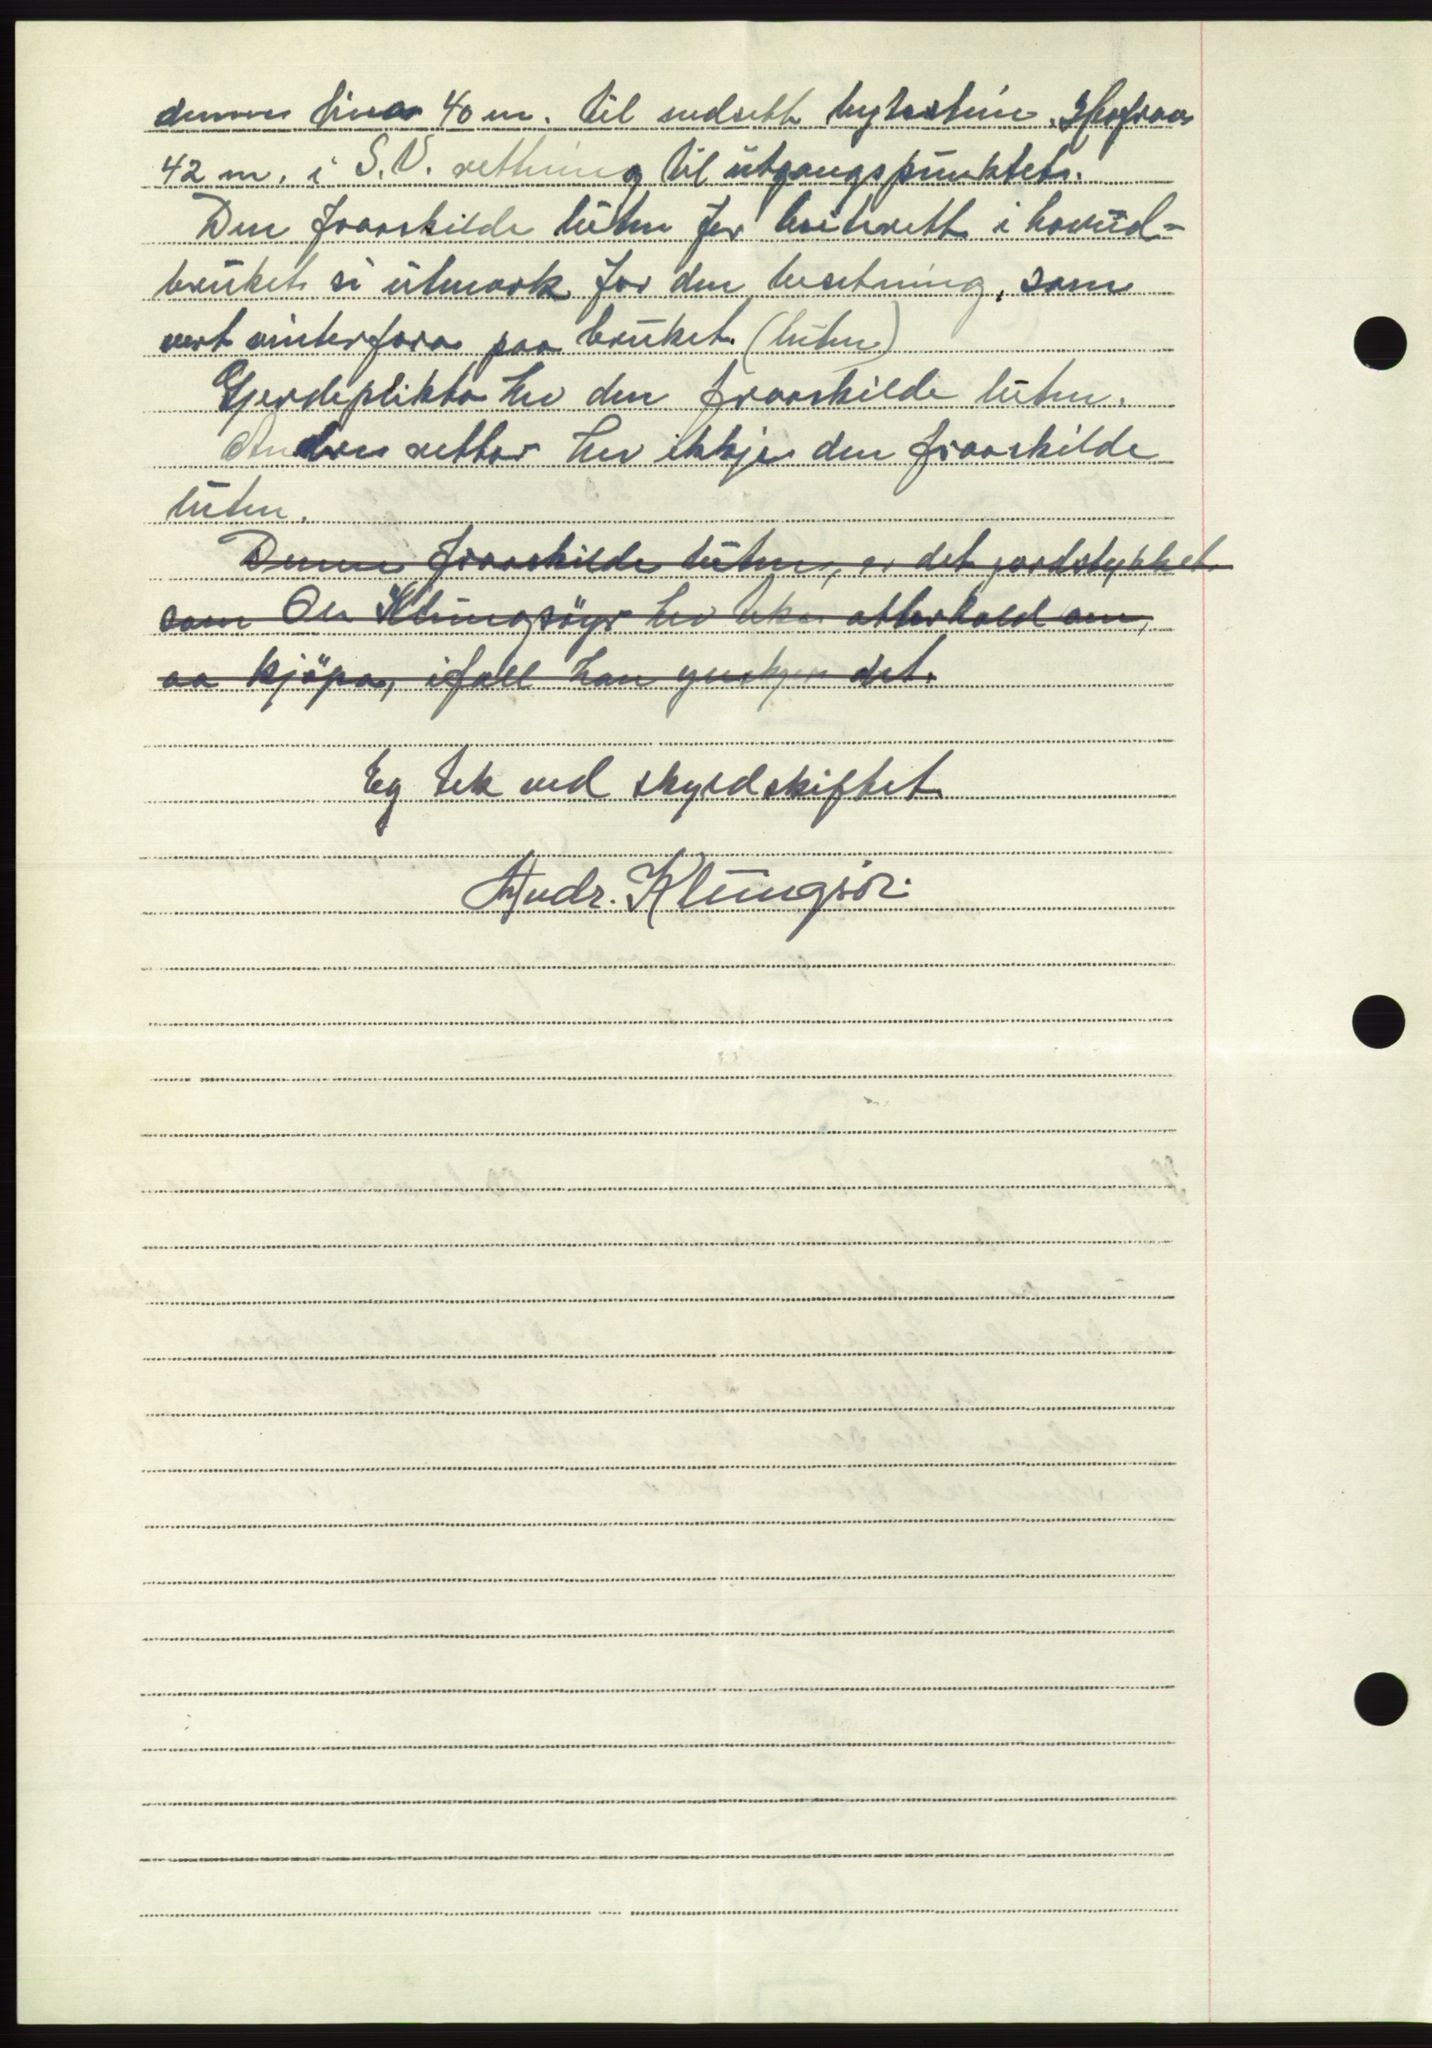 denne lina 40 m. til nedsett bytestein. Herfraa
42 m. i S.V. rettning til utgangspunktet.
Den fraaskilde luten fær beiterett i hovud-
brukets utmark for den besetning, som
vert vinterfora paa bruket. (luten)
Gjerdeplikta hev den fraaskilde luten.
Andre rettar hev ikkje den fraaskilde
luten.
Denne fraaskilde luten, er det jordstykket
som Ole Klungsöyr hev teke atterhald om,
aa kjöpa, ifall han ynskjer det.
Eg tek ved skyldskiftet
Andr. Klungsör.